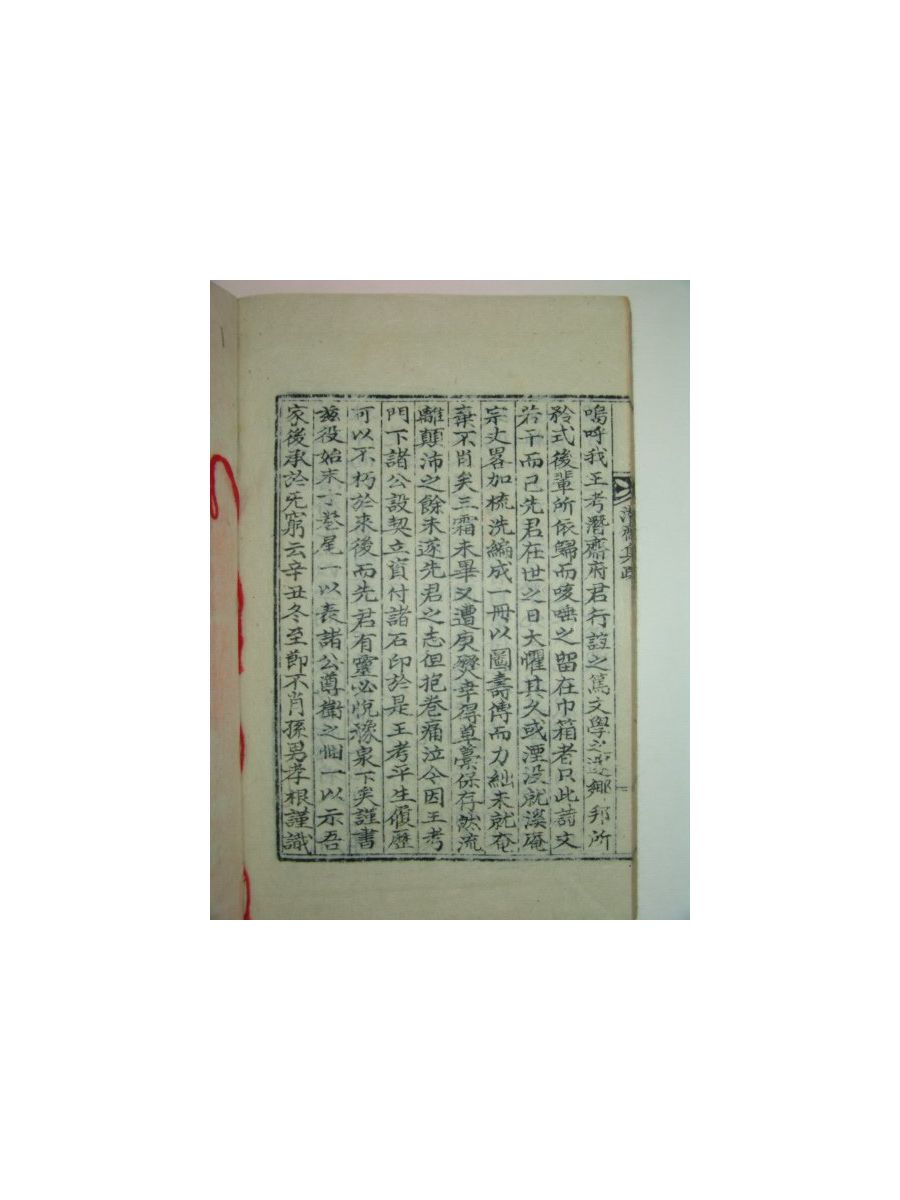 潛齋集跋
嗚呼我王考潛齋府君行誼之篤文學之邃鄉邦所
矜式後輩所依歸而咳唾之留在巾箱者只此詩文
若干而已先君在世之日大懼其久或湮没就溪庵
宗丈畧加梳洗編成一冊以圖壽傳而力絀未就奄
棄不肖矣三霜未畢又遭庚燹幸得草藁保存然流
離顛沛之餘未遂先君之志但抱卷痛泣今因王考
門下諸公設契立資付諸石印於是王考平生履歷
可以不朽於來後而先君有靈必悅豫泉下矣謹書
玆役始末于卷尾一以表諸公尊衛之悃一以示吾
家後承於无窮云辛丑冬至節不肖孫男孝根謹識